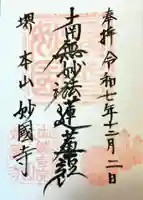 奉拝 令和七年十二月二日
南無妙法蓮華経
堺 本山 妙國寺